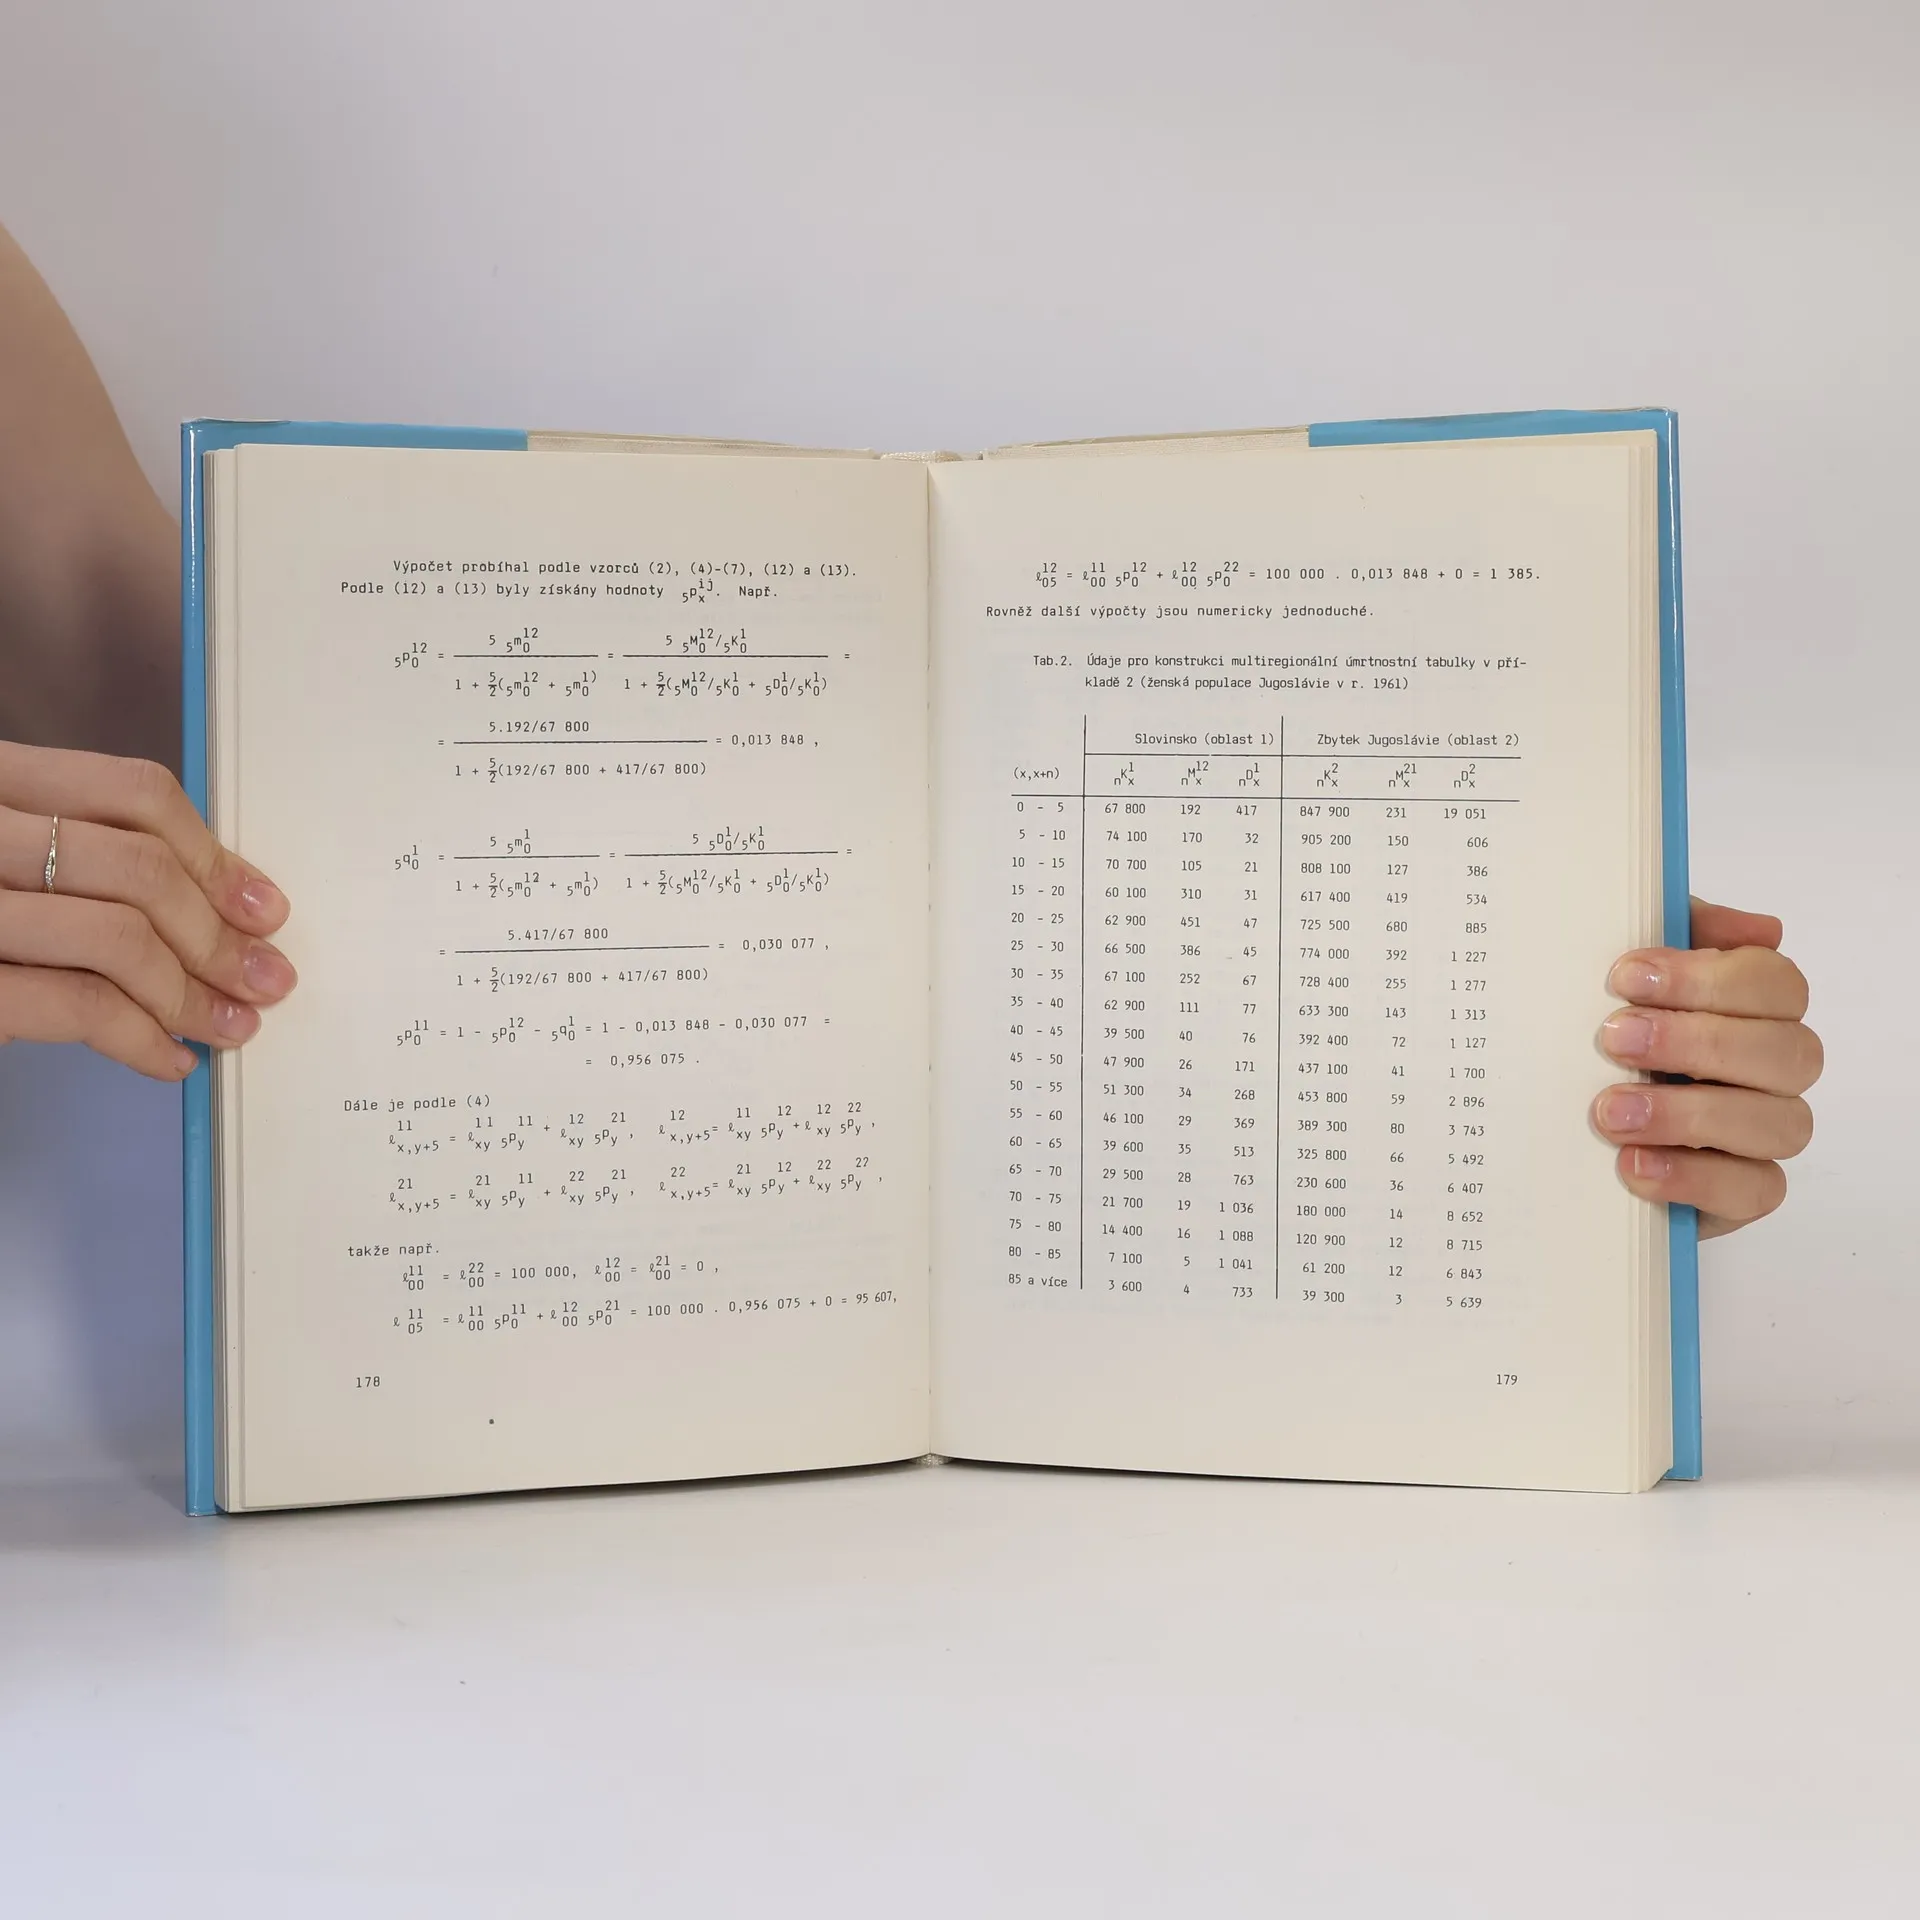 Výpočet probíhal podle vzorců (2), (4)-(7), (12) a (13).
Podle (12) a (13) byly získány hodnoty ₅pₓ^ij. Např.
₅p₀^12 = 5 ₅m₀^12 / (1 + 5/2(₅m₀^12 + ₅m₀^1)) = 5 ₅M₀^12/₅K₀^1 / (1 + 5/2(₅M₀^12/₅K₀^1 + ₅D₀^1/₅K₀^1)) =
= 5.192/67 800 / (1 + 5/2(192/67 800 + 417/67 800)) = 0,013 848 ,
₅q₀^1 = 5 ₅m₀^1 / (1 + 5/2(₅m₀^12 + ₅m₀^1)) = 5 ₅D₀^1/₅K₀^1 / (1 + 5/2(₅M₀^12/₅K₀^1 + ₅D₀^1/₅K₀^1)) =
= 5.417/67 800 / (1 + 5/2(192/67 800 + 417/67 800)) = 0,030 077 ,
₅p₀^11 = 1 - ₅p₀^12 - ₅q₀^1 = 1 - 0,013 848 - 0,030 077 =
= 0,956 075 .
Dále je podle (4)
ℓ^11_x,y+5 = ℓ^11_xy ₅p^11_y + ℓ^12_xy ₅p^21_y , ℓ^12_x,y+5 = ℓ^11_xy ₅p^12_y + ℓ^12_xy ₅p^22_y ,
ℓ^21_x,y+5 = ℓ^21_xy ₅p^11_y + ℓ^22_xy ₅p^21_y , ℓ^22_x,y+5 = ℓ^21_xy ₅p^12_y + ℓ^22_xy ₅p^22_y ,
takže např.
ℓ^11_00 = ℓ^22_00 = 100 000, ℓ^12_00 = ℓ^21_00 = 0 ,
ℓ^11_05 = ℓ^11_00 ₅p^11_0 + ℓ^12_00 ₅p^21_0 = 100 000 . 0,956 075 + 0 = 95 607,
178
ℓ^12_05 = ℓ^11_00 ₅p^12_0 + ℓ^12_00 ₅p^22_0 = 100 000 . 0,013 848 + 0 = 1 385.
Rovněž další výpočty jsou numericky jednoduché.
Tab.2. Údaje pro konstrukci multiregionální úmrtnostní tabulky v pří-
kladě 2 (ženská populace Jugoslávie v r. 1961)
Slovinsko (oblast 1) Zbytek Jugoslávie (oblast 2)
(x,x+n) nK^1_x nM^12_x nD^1_x nK^2_x nM^21_x nD^2_x
0 - 5 67 800 192 417 847 900 231 19 051
5 - 10 74 100 170 32 905 200 150 606
10 - 15 70 700 105 21 808 100 127 386
15 - 20 60 100 310 31 617 400 419 534
20 - 25 62 900 451 47 725 500 680 885
25 - 30 66 500 386 45 774 000 392 1 227
30 - 35 67 100 252 67 728 400 255 1 277
35 - 40 62 900 111 77 633 300 143 1 313
40 - 45 39 500 40 76 392 400 72 1 127
45 - 50 47 900 26 171 437 100 41 1 700
50 - 55 51 300 34 268 453 800 59 2 896
55 - 60 46 100 29 369 389 300 80 3 743
60 - 65 39 600 35 513 325 800 66 5 492
65 - 70 29 500 28 763 230 600 36 6 407
70 - 75 21 700 19 1 036 180 000 14 8 652
75 - 80 14 400 16 1 088 120 900 12 8 715
80 - 85 7 100 5 1 041 61 200 12 6 843
85 a více 3 600 4 733 39 300 3 5 639
179